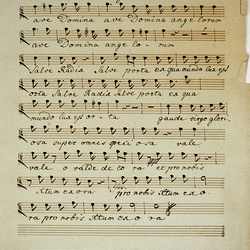 ave Domina ave Domina angelorum
ave Domina ange lo - rum
Salve Radix Salve porta ex qua mundo lux est
orta Salve Radix Salve porta ex qua
mundo lux est or - ta gaude virgo glori -
osa super omnes speciosa vale
vale o valde de co ra et pro nobis
Xtum ex o ra pro nobis Xtum ex o
ra pro nobis Xtum ex o ra